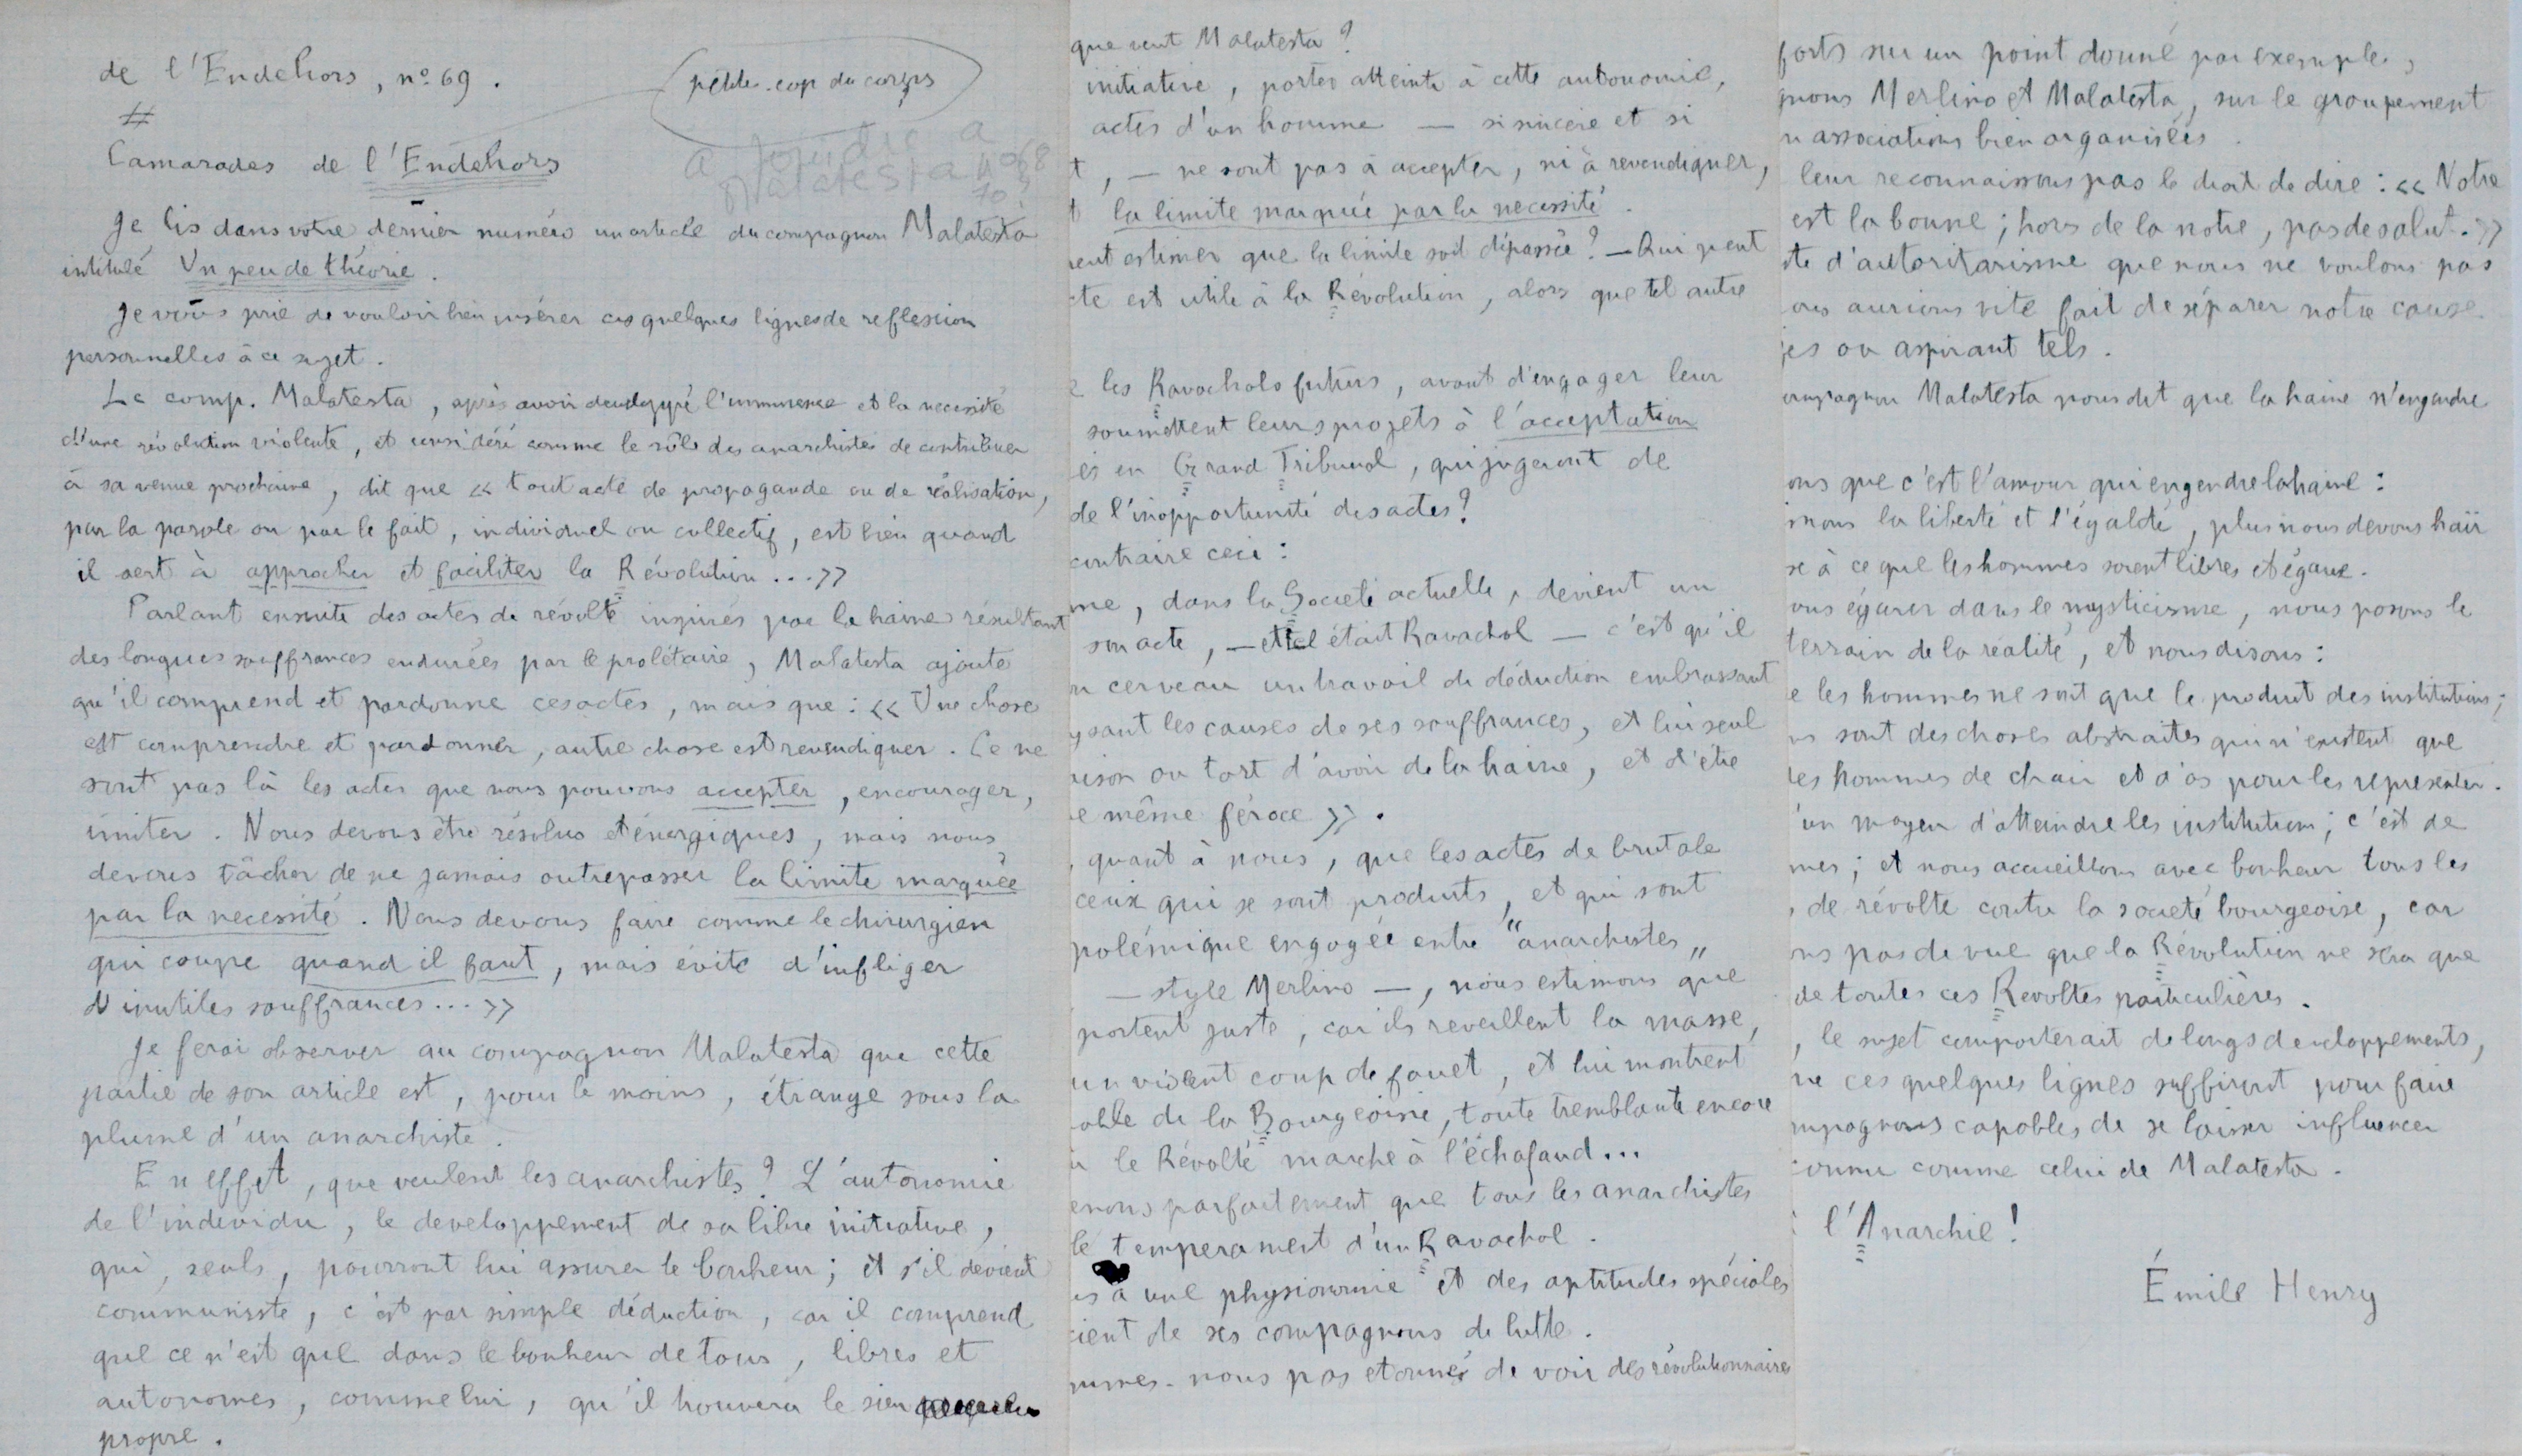 de l'Endehors, nº 69.
petite cap du corps
#
a joindre a
Malatesta nº 68
70 ?
Camarades de l'Endehors
Je lis dans votre dernier numéro un article du compagnon Malatesta
intitulé Un peu de théorie.
Je vous prie de vouloir bien insérer ces quelques lignes de reflexion
personnelles à ce sujet.
Le comp. Malatesta, après avoir developpé l'imminence et la necessité
d'une révolution violente, et considéré comme le rôle des anarchistes de contribuer
à sa venue prochaine, dit que « tout acte de propagande ou de réalisation,
par la parole ou par le fait, individuel ou collectif, est bien quand
il sert à approcher et faciliter la Révolution...»
Parlant ensuite des actes de révolte inspirés par la haine résultant
des longues souffrances endurées par le prolétaire, Malatesta ajoute
qu'il comprend et pardonne ces actes, mais que : « Une chose
est comprendre et pardonner, autre chose est revendiquer. Ce ne
sont pas là les actes que nous pouvons accepter, encourager,
imiter. Nous devons être résolus et énergiques, mais nous
devons tâcher de ne jamais outrepasser la limite marquée
par la necessité. Nous devons faire comme le chirurgien
qui coupe quand il faut, mais évite d'infliger
d'inutiles souffrances...»
Je ferai observer au compagnon Malatesta que cette
partie de son article est, pour le moins, étrange sous la
plume d'un anarchiste.
En effet, que veulent les anarchistes ? L'autonomie
de l'individu, le developpement de sa libre initiative,
qui, seuls, pourront lui assurer le bonheur ; et s'il devient
communiste, c'est par simple déduction, car il comprend
que ce n'est que dans le bonheur de tous, libres et
autonomes, comme lui, qu'il trouvera le sien
propre.
que veut Malatesta ?
initiative, porter atteinte à cette autonomie,
actes d'un homme — si sincère et si
t, — ne sont pas à accepter, ni à revendiquer,
t la limite marquée par la necessité.
eut estimer que la limite soit dépassée ? — Qui peut
cte est utile à la Révolution, alors que tel autre
e les Ravachols futurs, avant d'engager leur
soumettent leurs projets à l'acceptation
és en Grand Tribunal, qui jugeront de
de l'inopportunité des actes ?
contraire ceci :
me, dans la Société actuelle, devient un
son acte, — et tel était Ravachol — c'est qu'il
n cerveau un travail de déduction embrassant
ysant les causes de ses souffrances, et lui seul
aison ou tort d'avoir de la haine, et d'être
e même féroce ».
, quant à nous, que les actes de brutale
ceux qui se sont produits, et qui sont
polémique engagée entre "anarchistes"
— style Merlino —, nous estimons que
portent juste, car ils reveillent la masse,
un violent coup de fouet, et lui montrent
able de la Bourgeoisie, toute tremblante encore
ù le Révolté marche à l'échafaud...
enons parfaitement que tous les anarchistes
le temperament d'un Ravachol.
us a une physionomie et des aptitudes spéciales
cient de ses compagnons de lutte.
mmes-nous pas etonnés de voir des révolutionnaires
forts sur un point donné par exemple,
gnons Merlino et Malatesta, sur le groupement
n associations bien organisées.
leur reconnaissons pas le droit de dire : « Notre
est la bonne ; hors de la notre, pas de salut. »
ste d'autoritarisme que nous ne voulons pas
ous aurions vite fait de séparer notre cause
res ou aspirant tels.
ompagnon Malatesta nous dit que la haine n'engendre
ons que c'est l'amour qui engendre la haine :
imons la liberté et l'égalité, plus nous devons haïr
se à ce que les hommes soient libres et égaux.
ous égarer dans le mysticisme, nous posons le
terrain de la realité, et nous disons :
e les hommes ne sont que le produit des institutions ;
ns sont des choses abstraites qui n'existent que
les hommes de chair et d'os pour les representer.
'un moyen d'atteindre les institutions ; c'est de
mes ; et nous accueillons avec bonheur tous les
, de révolte contre la societé bourgeoise, car
ons pas de vue que la Révolution ne sera que
de toutes ces Revoltes particulières.
, le sujet comporterait de longs developpements,
ue ces quelques lignes suffiront pour faire
mpagnons capables de se laisser influencer
connu comme celui de Malatesta.
l'Anarchie !
Émile Henry